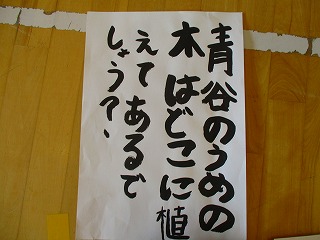 青谷のうめの
木はどこに植
えてあるで
しょう?、